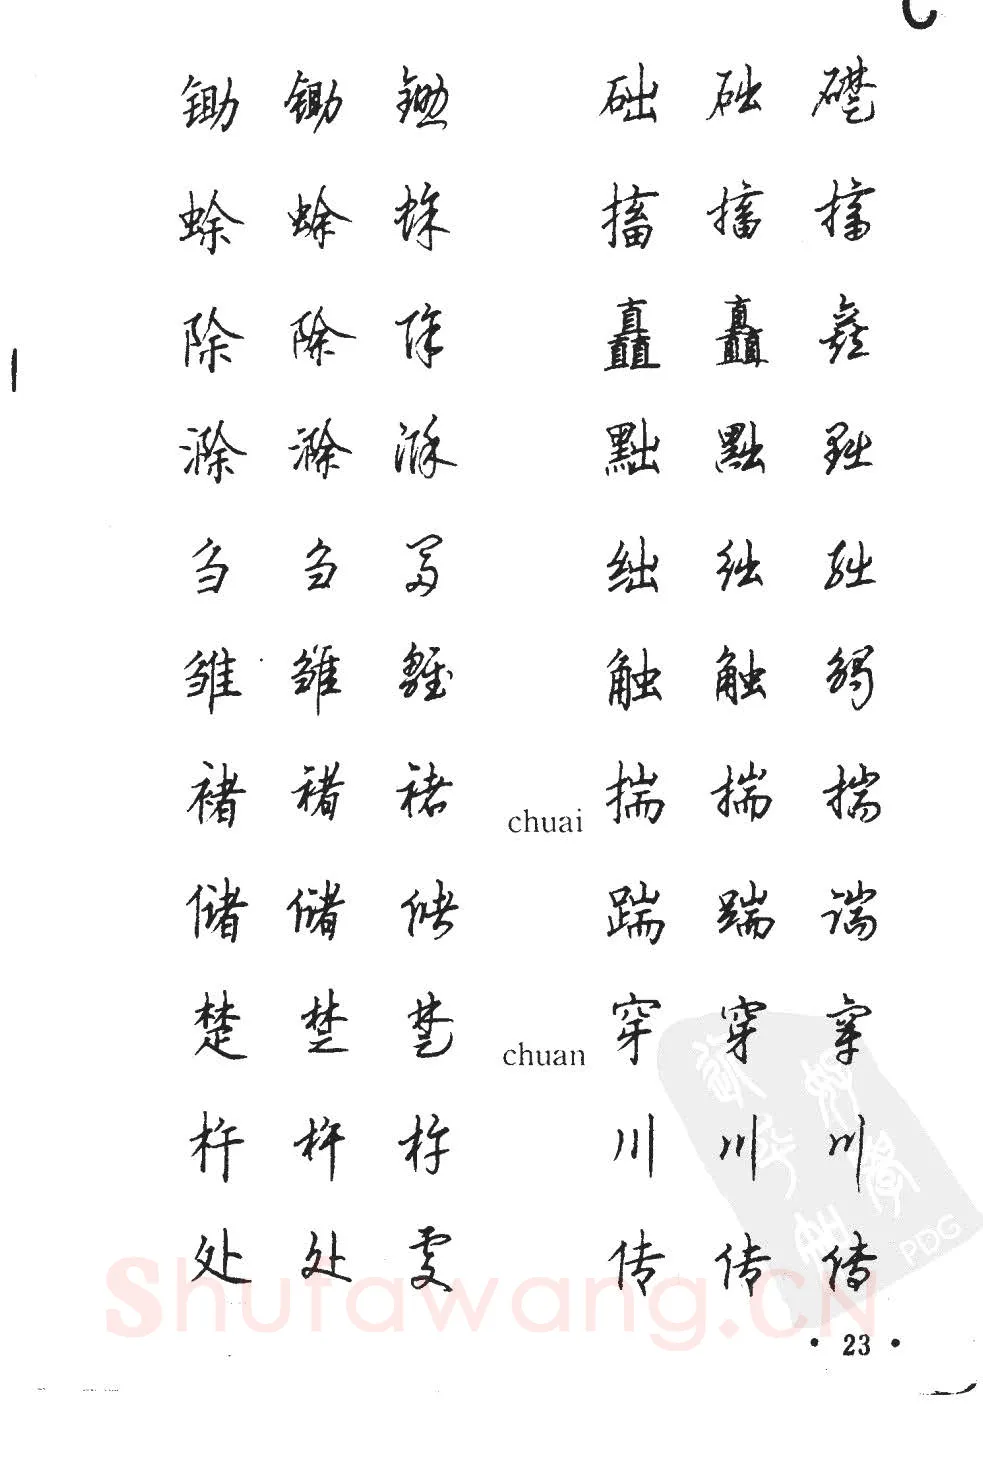 锄 锄 鋤
蜍 蜍 蜍
除 除 除
滁 滁 滁
刍 刍 芻
雏 雏 雛
褚 褚 褚
储 储 儲
楚 楚 楚
杵 杵 杵
处 处 處
础 础 礎
搐 搐 搐
矗 矗 矗
黜 黜 黜
绌 绌 絀
触 触 觸
chuai 揣 揣 揣
踹 踹 踹
chuan 穿 穿 穿
川 川 川
传 传 傳
Shufawang.CN
PDG
• 23 •